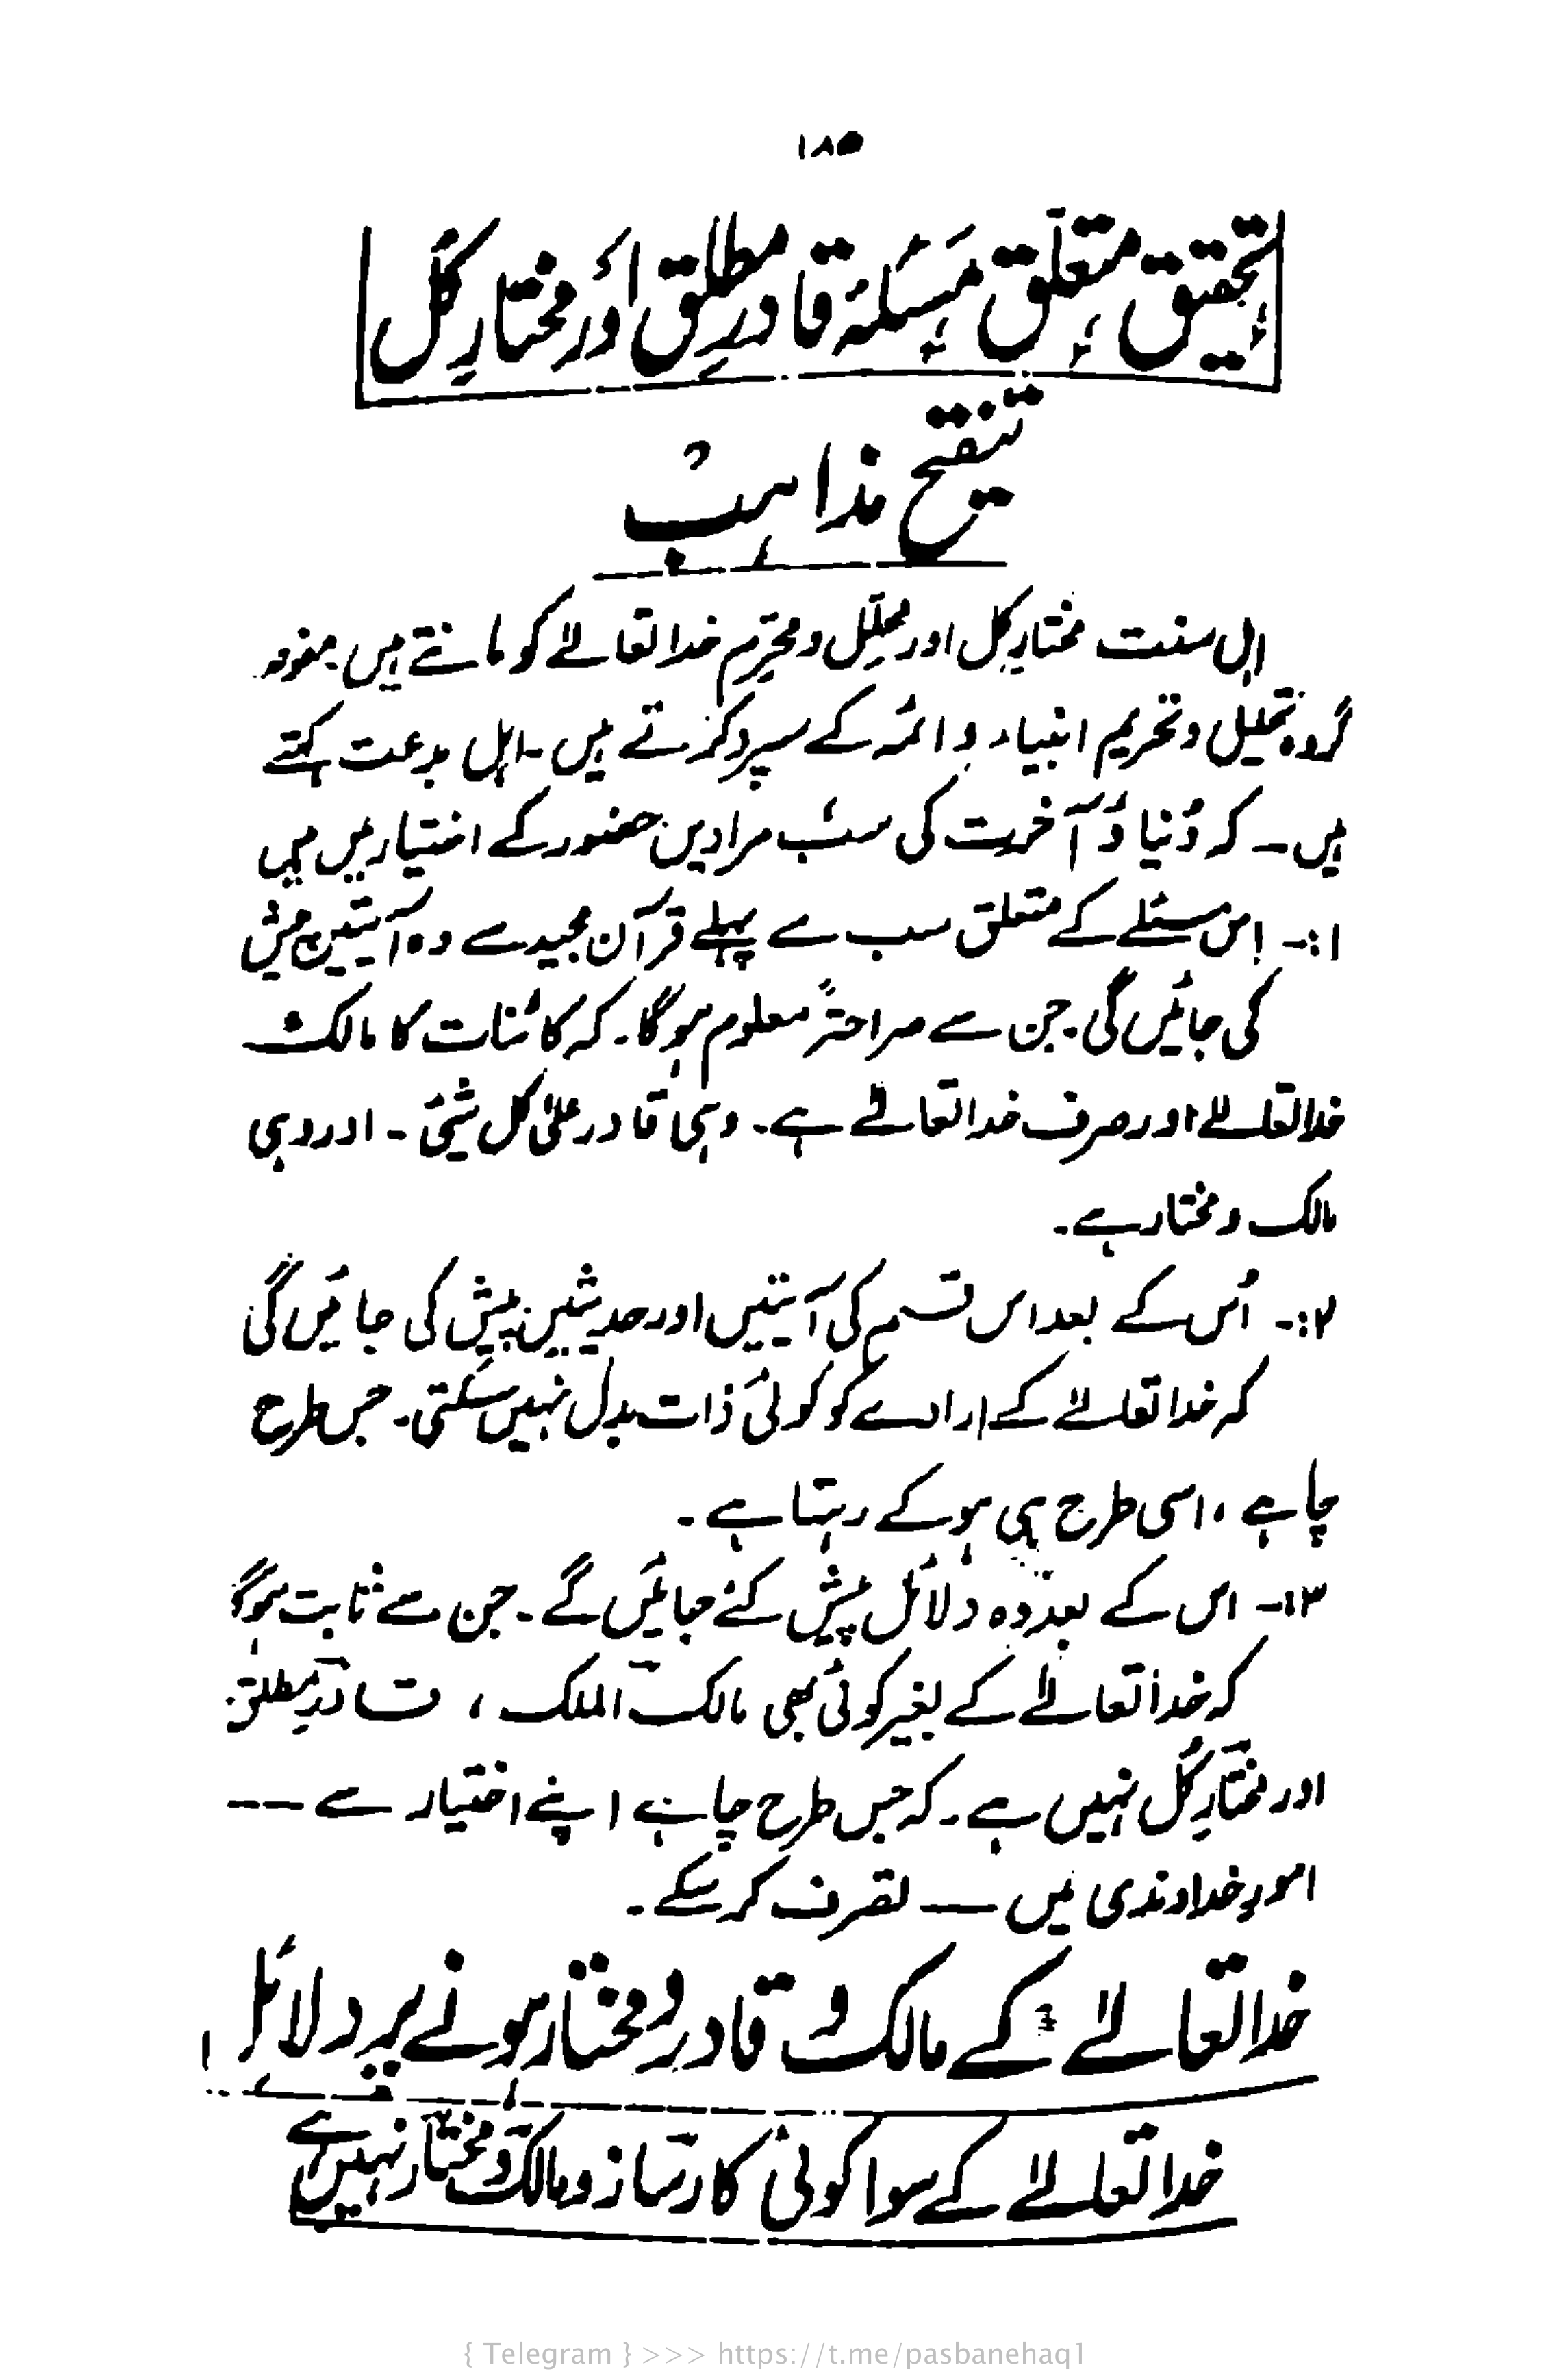 ۱۸۵
تحقیق متعلق مسئلہ قادرِ مطلق اور مختارِ کُل
تنقیح مذاہب
اہل سنت مختارِ کل اور محلِّل و محرِّم خدا تعالےٰ کو مانتے ہیں۔
گروہ تحلیل و تحریم انبیاء و ائمہ کے سپرد کرتے ہیں۔ اہل بدعت کہتے
ہیں۔ کہ دُنیا وَ آخرت کی سب مرادیں حضور کے اختیار میں ہیں
۱:۔ اِس مسئلے کے متعلق سب سے پہلے قرآن مجید سے وہ آیتیں پیش
کی جائیں گی۔ جن سے صراحتہً معلوم ہوگا۔ کہ کائنات کا مالک
خدا تعالےٰ اور صرف خدا تعالےٰ ہے۔ وہی قادر علیٰ کل شیٔ۔ اور وہی
مالک و مختار ہے۔
۲:۔ اُس کے بعد اس قسم کی آیتیں اور حدیثیں پیش کی جائیں گی
کہ خدا تعالےٰ کے ارادے کو کوئی ذات بدل نہیں سکتی۔ جس طرح
چاہے ، اسی طرح ہی ہو کے رہتا ہے۔
۳:۔ اس کے بعد وہ دلائل پیش کئے جائیں گے۔ جن سے ثابت ہوگا
کہ خدا تعالےٰ کے بغیر کوئی بھی مالک الملک ، قادرِ مطلق
اور مختارِ کُل نہیں ہے۔ کہ جس طرح چاہے اپنے اختیار سے ---
امورِ خداوندی میں — تصرف کر سکے۔
خدا تعالےٰ کے مالک و قادر و مختار ہونے پر دلائل !
خدا تعالےٰ کے سوا کوئی کارساز و مالک و مختار نہیں ہے
{ Telegram } >>> https://t.me/pasbanehaq1